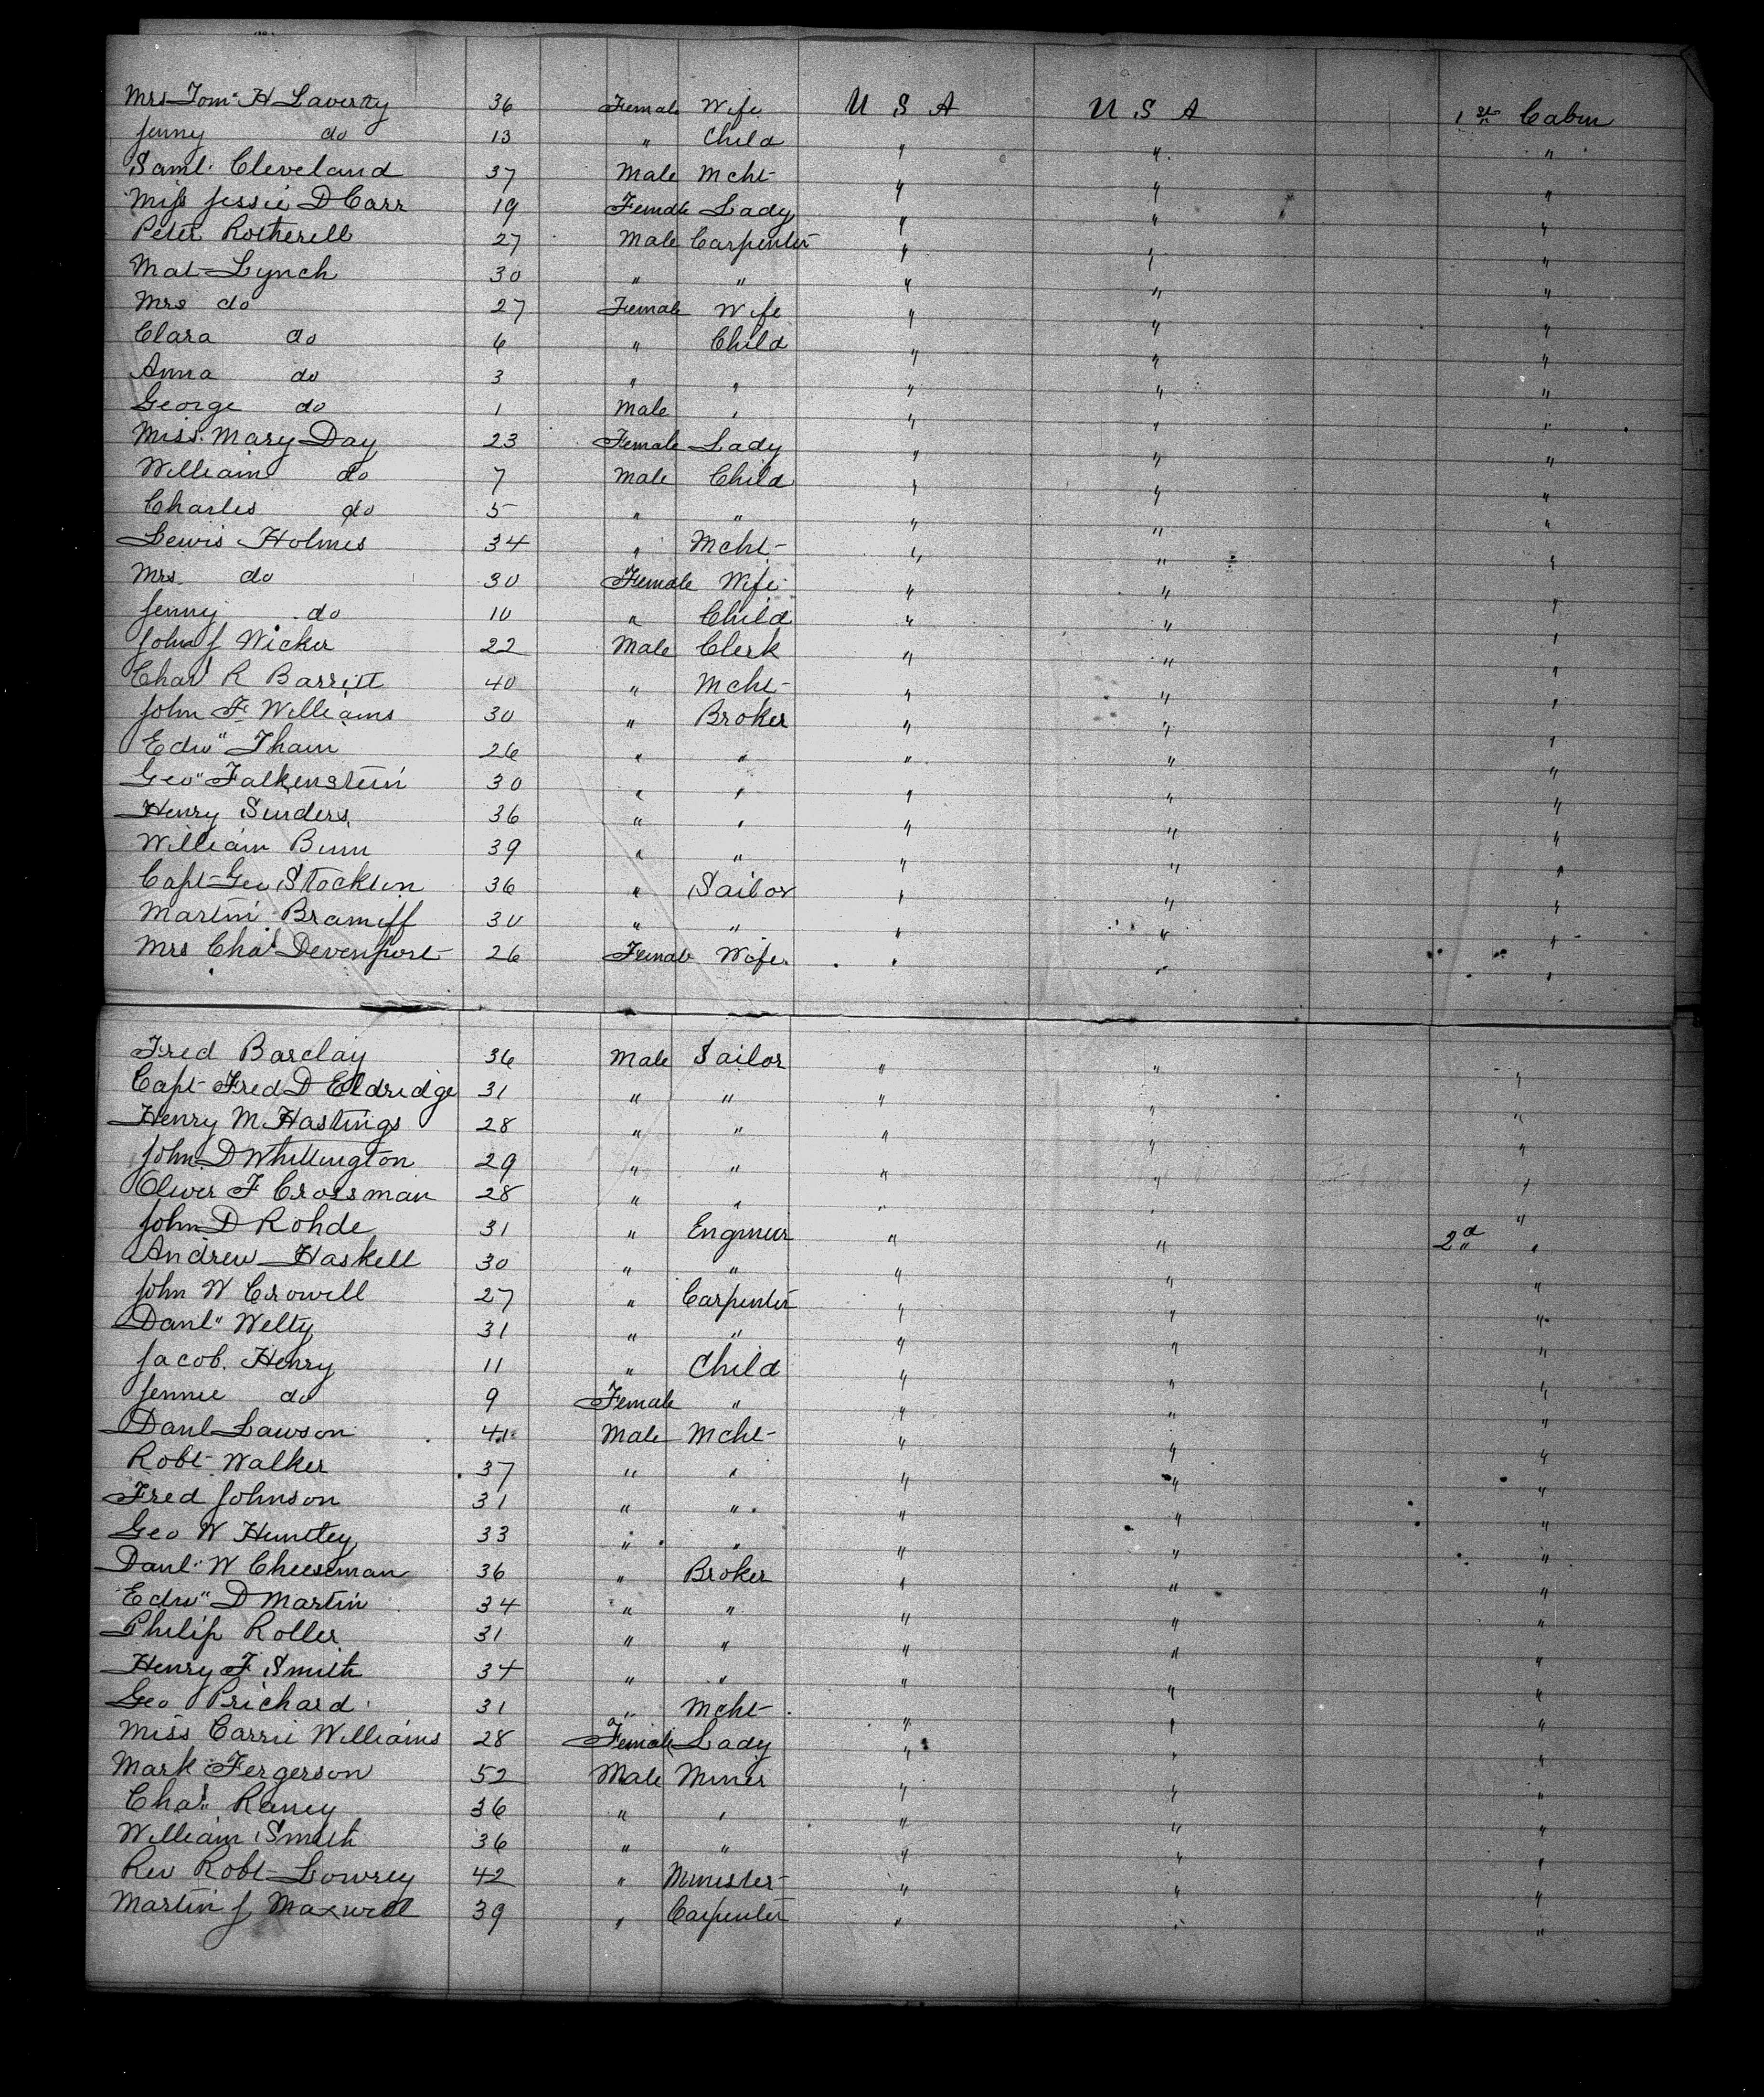 Mrs Tom" H Laverty 36 Female Wife U S A U S A 1st Cabin
Jenny do 13 " Child " " "
Saml. Cleveland 37 Male Mcht " " "
Miss Jessie D Carr 19 Female Lady " " "
Peter Rotherell 27 Male Carpenter " " "
Mat Lynch 30 " " " " "
Mrs do 27 Female Wife " " "
Clara do 6 " Child " " "
Anna do 3 " " " " "
George do 1 Male " " " "
Miss Mary Day 23 Female Lady " " "
William do 7 Male Child " " "
Charles do 5 " " " " "
Lewis Holmes 34 " Mcht " " "
Mrs. do 30 Female Wife " " "
Jenny do 10 " Child " " "
John J Wicker 22 Male Clerk " " "
Chas R Barritt 40 " Mcht " " "
John F Williams 30 " Broker " " "
Edw" Tham 26 " " " " "
Geo" Falkenstein 30 " " " " "
Henry Sinders 36 " " " " "
William Bunn 39 " " " " "
Capt Geo Stockton 36 " Sailor " " "
Martin Bramiff 30 " " " " "
Mrs Chas Devenport 26 Female Wife " " "
Fred Barclay 36 Male Sailor " " "
Capt Fred D Eldridge 31 " " " " "
Henry M Hastings 28 " " " " "
John D Whittington 29 " " " " "
Oliver F Crossman 28 " " " " "
John D Rohde 31 " Engineer " " 2d "
Andrew Haskell 30 " " " " "
John W Crowell 27 " Carpenter " " "
Danl" Welty 31 " " " " "
Jacob. Henry 11 " Child " " "
Jennie do 9 Female " " " "
Danl Lawson 41 Male Mcht " " "
Robt Walker 37 " " " " "
Fred Johnson 31 " " " " "
Geo W Huntey 33 " " " " "
Danl" W Cheeseman 36 " Broker " " "
Edw" D Martin 34 " " " " "
Philip Roller 31 " " " " "
Henry F Smith 34 " " " " "
Geo Prichard 31 " Mcht " " "
Miss Carrie Williams 28 Female Lady " " "
Mark Fergerson 52 Male Miner " " "
Chas" Raney 36 " " " " "
William Smith 36 " " " " "
Rev Robt Lowrey 42 " Minister " " "
Martin J Maxwell 39 " Carpenter " " "